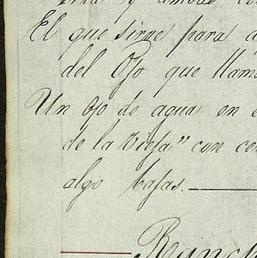 y ambas
El que sirve para
del Ojo que llam
Un ojo de agua en
de la Vieja" con
algo bajas.
Ranch